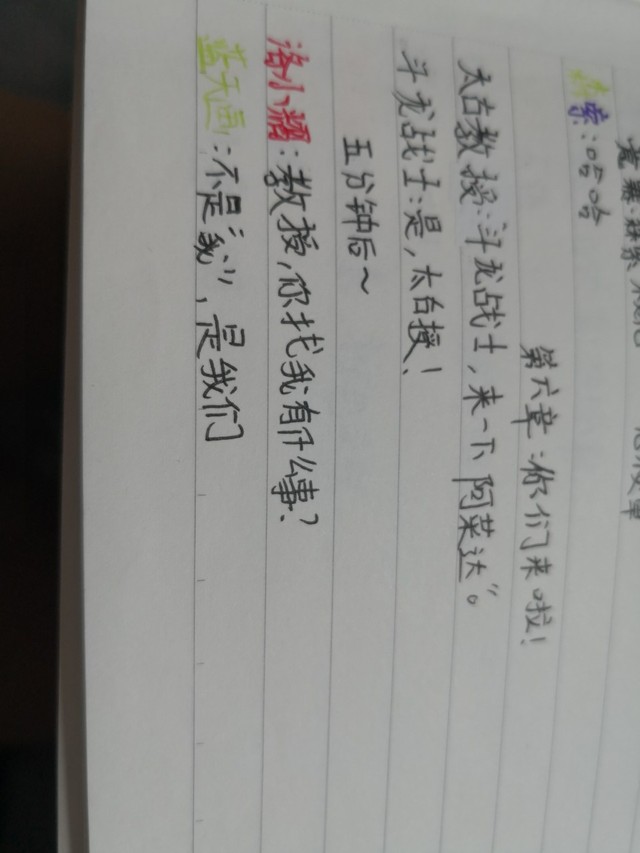 :哈哈
第六章:你们来啦!
太白教授:斗龙战士,来一下阿菜达”。
斗龙战士:是,太白授!
五分钟后~
洛小熠:教授,你找我有什么事?
蓝天画:不是“我”,是我们